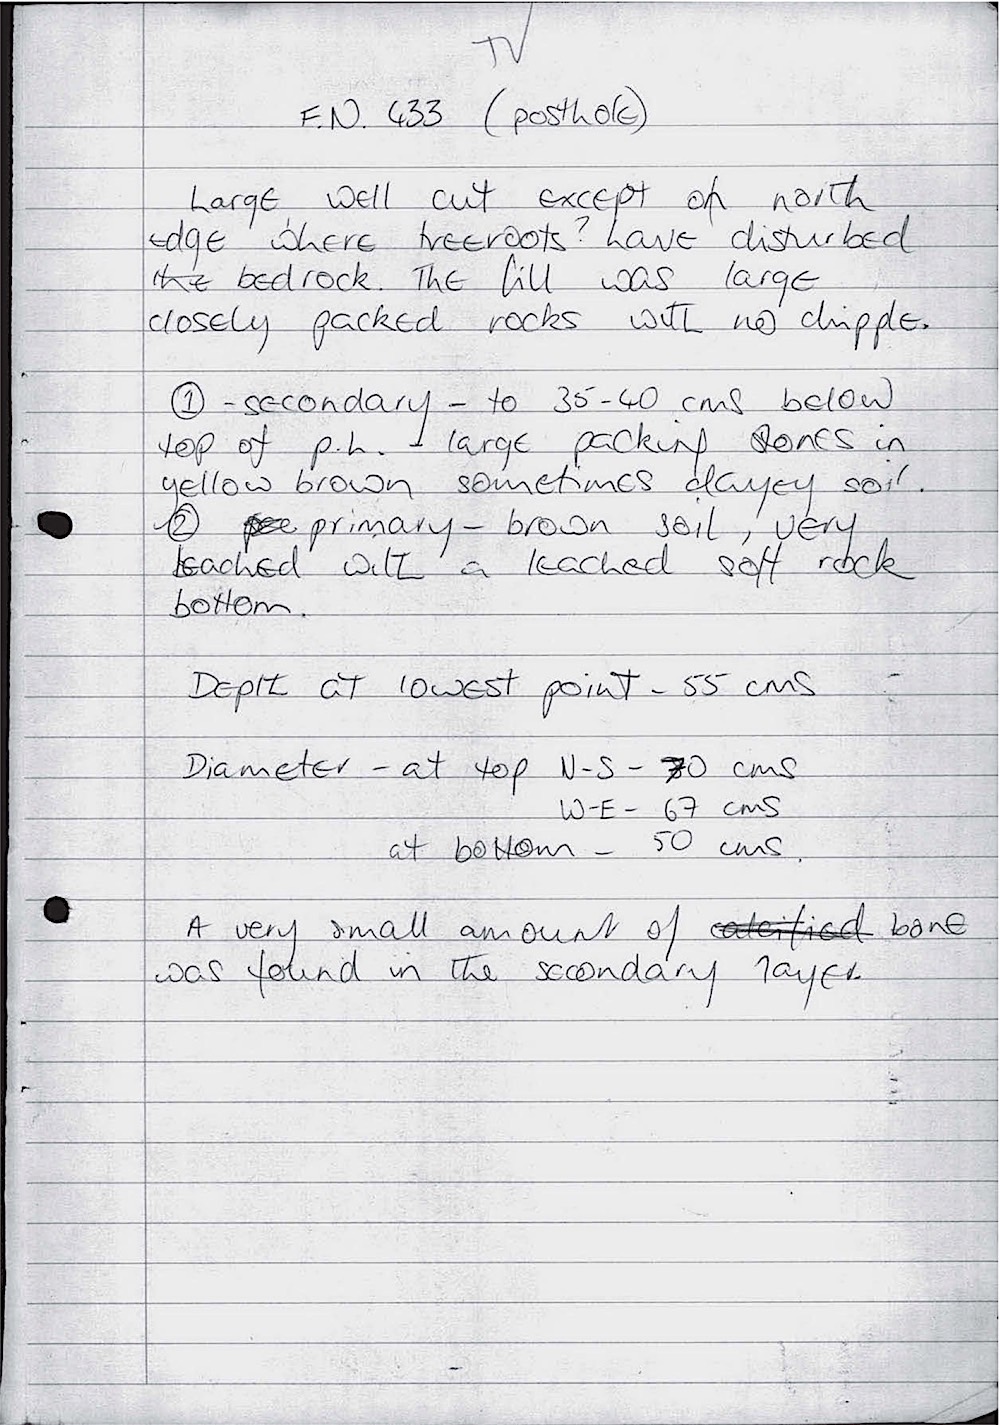 TV
F.N. 433 (posthole)
Large, well cut except on north
edge where treeroots? have disturbed
the bedrock. The fill was large
closely packed rocks with no chipple.
① - secondary - to 35-40 cms below
top of p.h. - large packing stones in
yellow brown sometimes clayey soil.
② primary - brown soil, very
leached with a leached soft rock
bottom.
Depth at lowest point - 55 cms
Diameter - at top N-S - 70 cms
W-E - 67 cms
at bottom - 50 cms.
A very small amount of calcified bone
was found in the secondary layer.